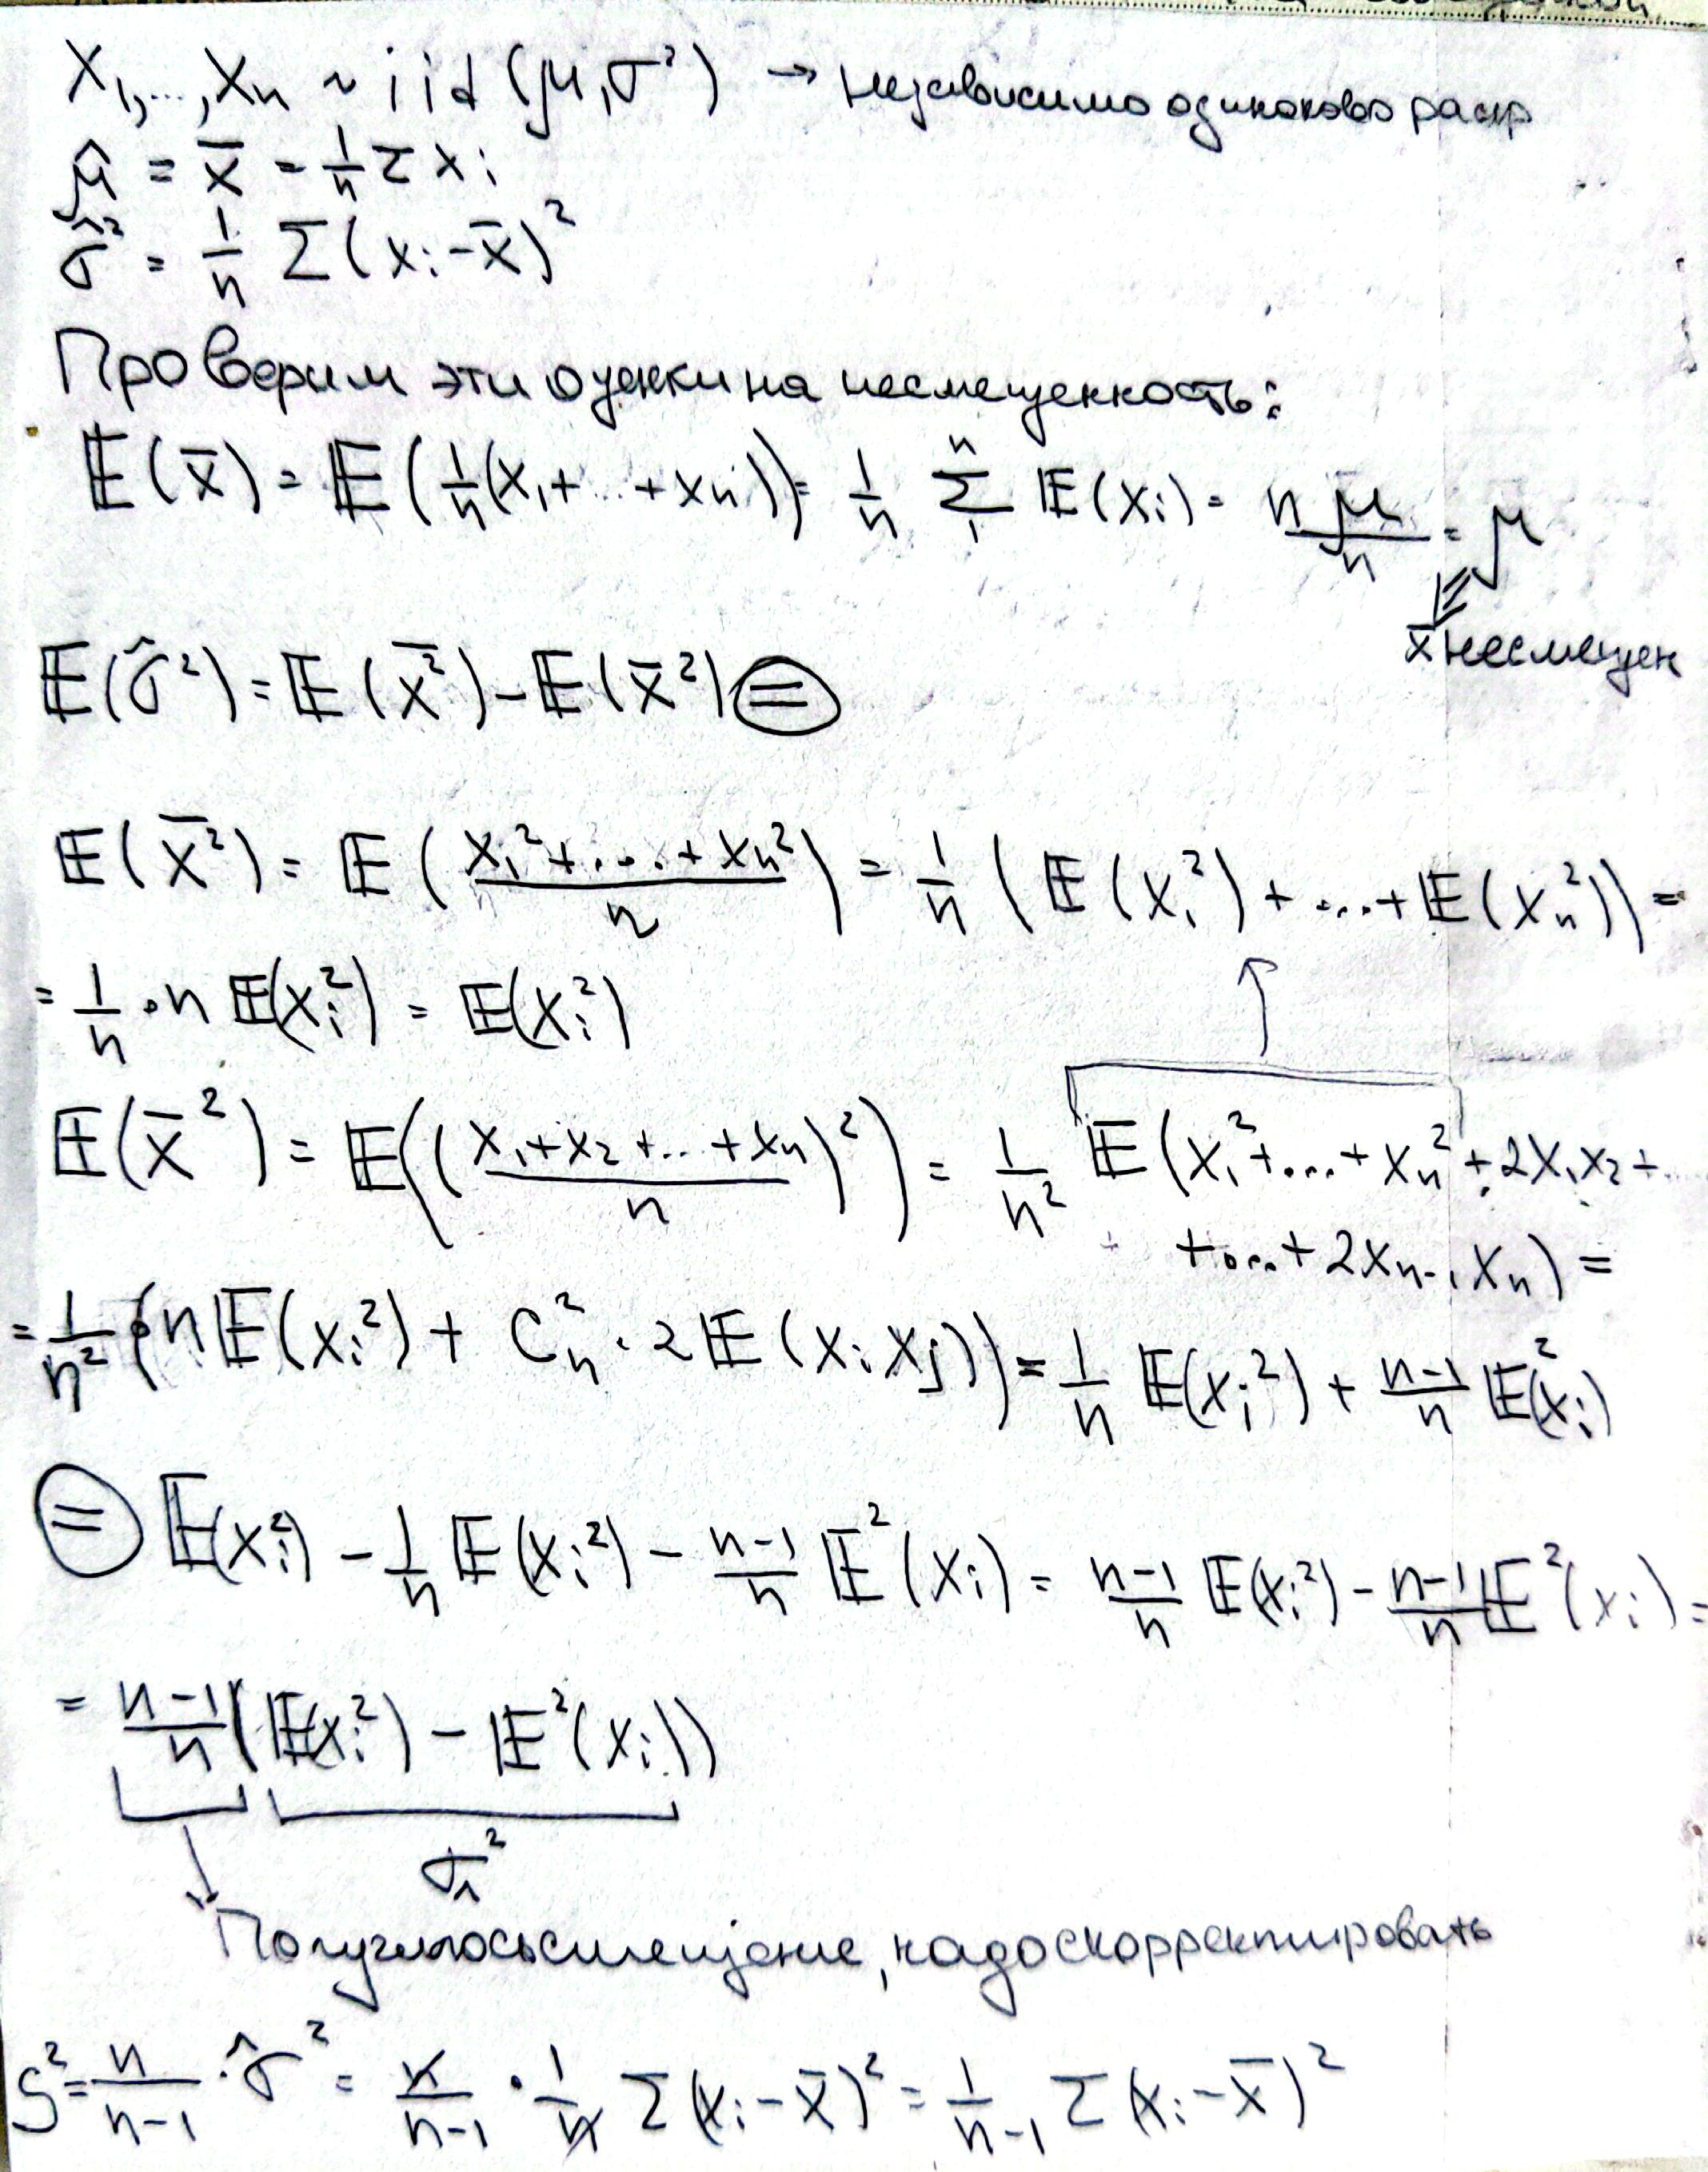 X₁, ..., Xₙ ~ iid (μ, σ²) → независимо одинаково распр
μ̂ = x̄ = 1/n Σ xᵢ
σ̂² = 1/n Σ (xᵢ - x̄)²
Проверим эти оценки на несмещенность:
𝔼(x̄) = 𝔼(1/n (x₁ + ... + xₙ)) = 1/n Σ₁ⁿ 𝔼(xᵢ) = nμ/n = μ
⇓
x̄ несмещен
𝔼(σ̂²) = 𝔼(\overline{x²}) - 𝔼(x̄²) ⊜
𝔼(\overline{x²}) = 𝔼((x₁² + ... + xₙ²)/n) = 1/n (𝔼(x₁²) + ... + 𝔼(xₙ²)) =
= 1/n · n 𝔼(xᵢ²) = 𝔼(xᵢ²)
↑
𝔼(x̄²) = 𝔼(((x₁ + x₂ + ... + xₙ)/n)²) = 1/n² 𝔼(x₁² + ... + xₙ² + 2x₁x₂ + ...
+ ... + 2xₙ₋₁xₙ) =
= 1/n² (n𝔼(xᵢ²) + Cₙ² · 2𝔼(xᵢxⱼ)) = 1/n 𝔼(xᵢ²) + (n-1)/n 𝔼²(xᵢ)
⊜ 𝔼(xᵢ²) - 1/n 𝔼(xᵢ²) - (n-1)/n 𝔼²(xᵢ) = (n-1)/n 𝔼(xᵢ²) - (n-1)/n 𝔼²(xᵢ) =
= (n-1)/n (𝔼(xᵢ²) - 𝔼²(xᵢ))
σ²
Получилось смещение, надо скорректировать
S² = n/(n-1) · σ̂² = n/(n-1) · 1/n Σ (xᵢ - x̄)² = 1/(n-1) Σ (xᵢ - x̄)²